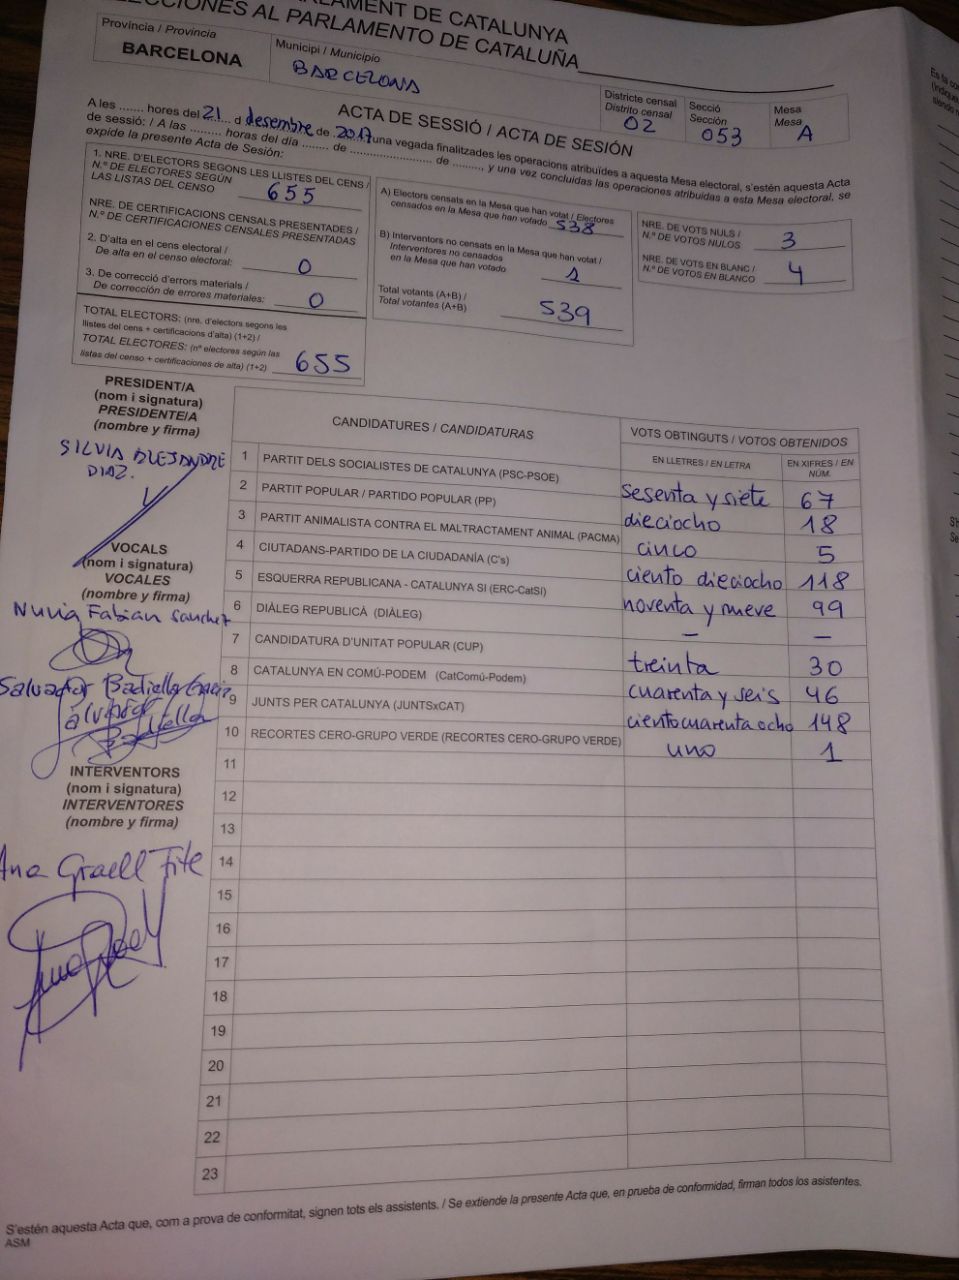 PARLAMENT DE CATALUNYA
ELECCIONES AL PARLAMENTO DE CATALUÑA
Provincia / Provincia
BARCELONA
Municipi / Municipio
BARCELONA
Districte censal
Distrito censal
02
Secció
Sección
053
Mesa
Mesa
A
ACTA DE SESSIÓ / ACTA DE SESIÓN
A les ....... hores del 21 d desembre de 2017 una vegada finalitzades les operacions atribuïdes a aquesta Mesa electoral, s'estén aquesta Acta
de sessió: / A las ......... horas del día ....... de ...................... de ........., y una vez concluidas las operaciones atribuidas a esta Mesa electoral, se
expide la presente Acta de Sesión:
1. NRE. D'ELECTORS SEGONS LES LLISTES DEL CENS /
N.º DE ELECTORES SEGÚN
LAS LISTAS DEL CENSO
655
NRE. DE CERTIFICACIONS CENSALS PRESENTADES /
N.º DE CERTIFICACIONES CENSALES PRESENTADAS
2. D'alta en el cens electoral /
De alta en el censo electoral:
0
3. De correcció d'errors materials /
De corrección de errores materiales:
0
TOTAL ELECTORS: (nre. d'electors segons les
llistes del cens + certificacions d'alta) (1+2) /
TOTAL ELECTORES: (nº electores según las
listas del censo + certificaciones de alta) (1+2)
655
A) Electors censats en la Mesa que han votat / Electores
censados en la Mesa que han votado
538
B) Interventors no censats en la Mesa que han votat /
Interventores no censados
en la Mesa que han votado
1
Total votants (A+B) /
Total votantes (A+B)
539
NRE. DE VOTS NULS /
N.º DE VOTOS NULOS
3
NRE. DE VOTS EN BLANC /
N.º DE VOTOS EN BLANCO
4
PRESIDENT/A
(nom i signatura)
PRESIDENTE/A
(nombre y firma)
SILVIA ALEJANDRE
DIAZ.
VOCALS
(nom i signatura)
VOCALES
(nombre y firma)
Nuria Fabian Sanchez
Salvador Badiella Garcia
Salvador
Badiella
INTERVENTORS
(nom i signatura)
INTERVENTORES
(nombre y firma)
Ana Graell Fite
CANDIDATURES / CANDIDATURAS
VOTS OBTINGUTS / VOTOS OBTENIDOS
EN LLETRES / EN LETRA
EN XIFRES / EN
NÚM.
1 PARTIT DELS SOCIALISTES DE CATALUNYA (PSC-PSOE) sesenta y siete 67
2 PARTIT POPULAR / PARTIDO POPULAR (PP) dieciocho 18
3 PARTIT ANIMALISTA CONTRA EL MALTRACTAMENT ANIMAL (PACMA) cinco 5
4 CIUTADANS-PARTIDO DE LA CIUDADANÍA (C's) ciento dieciocho 118
5 ESQUERRA REPUBLICANA - CATALUNYA SI (ERC-CatSí) noventa y nueve 99
6 DIÀLEG REPUBLICÀ (DIÀLEG) – –
7 CANDIDATURA D'UNITAT POPULAR (CUP) treinta 30
8 CATALUNYA EN COMÚ-PODEM (CatComú-Podem) cuarenta y seis 46
9 JUNTS PER CATALUNYA (JUNTSxCAT) ciento cuarenta ocho 148
10 RECORTES CERO-GRUPO VERDE (RECORTES CERO-GRUPO VERDE) uno 1
11
12
13
14
15
16
17
18
19
20
21
22
23
S'estén aquesta Acta que, com a prova de conformitat, signen tots els assistents. / Se extiende la presente Acta que, en prueba de conformidad, firman todos los asistentes.
ASM